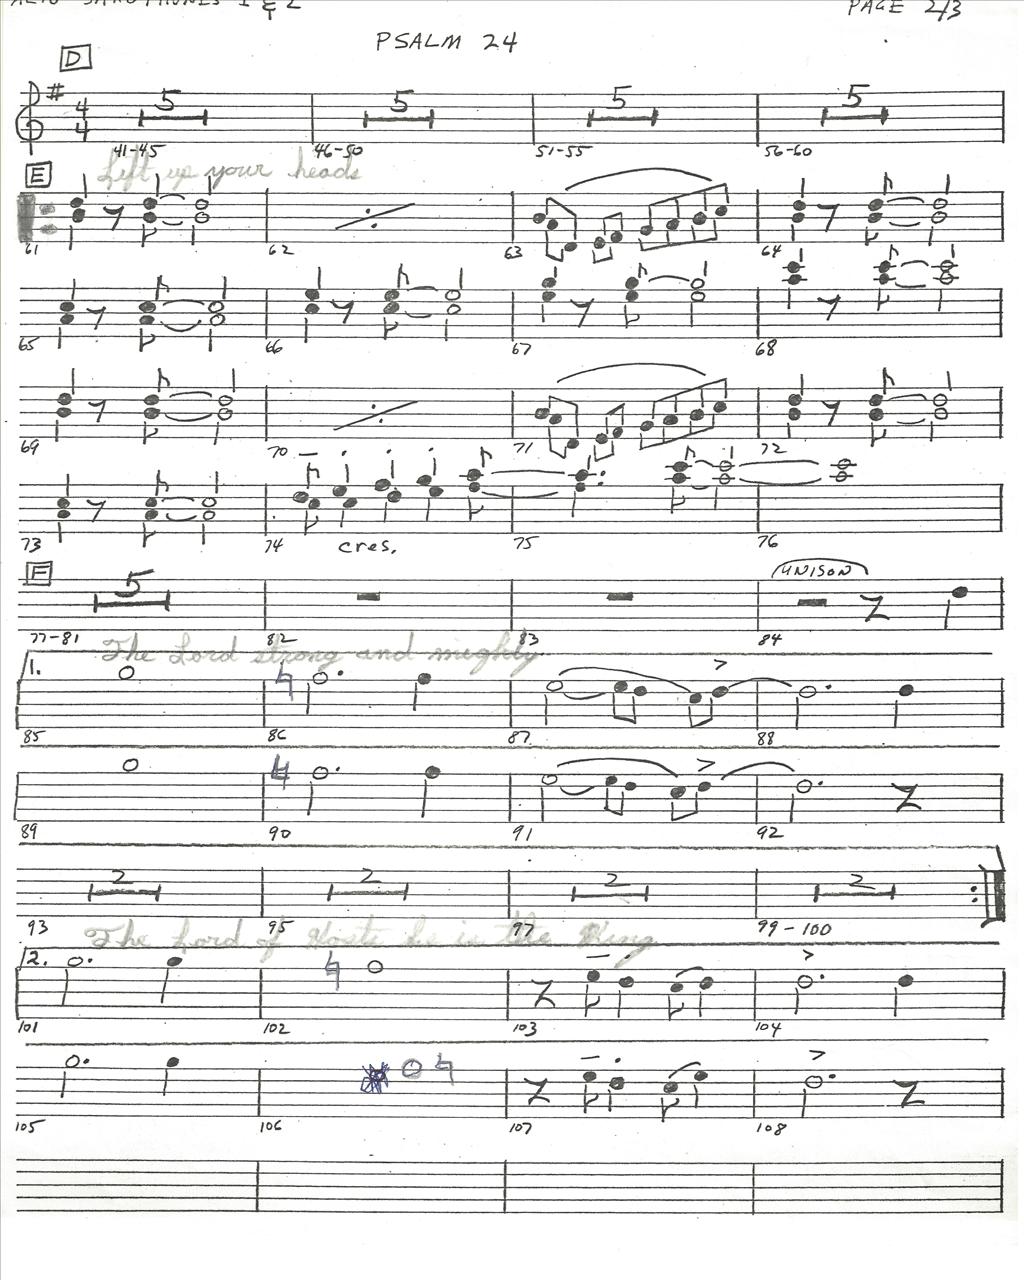 ALTO SAXOPHONES 1 & 2 PAGE 2/3
PSALM 24
D
4/4 5 5 5 5
41-45 46-50 51-55 56-60
Lift up your heads
E
61 62 63 64
65 66 67 68
69 70 71 72
cres.
73 74 75 76
F
5 UNISON
77-81 82 83 84
The Lord strong and mighty
1.
85 86 87 88
89 90 91 92
2 2 2 2
93 95 97 99-100
The Lord of Hosts he is the King
2.
101 102 103 104
105 106 107 108